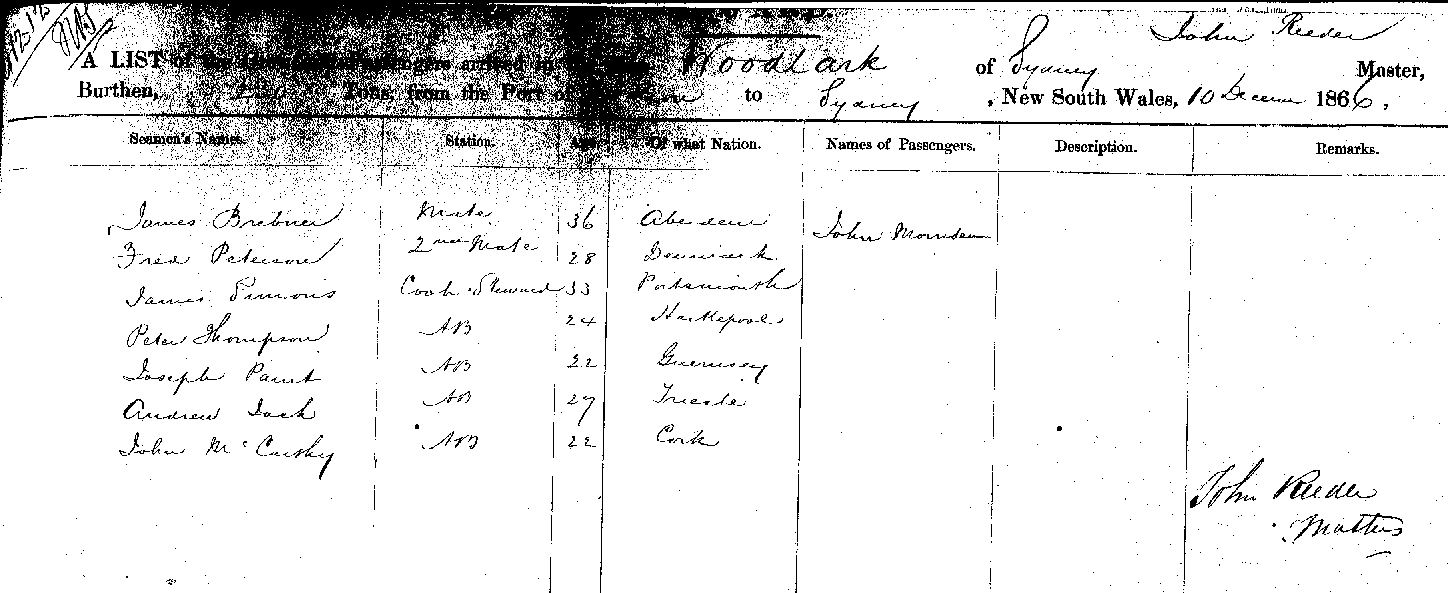 John Reeder
A LIST of the Passengers arrived in Woodlark of Sydney Master,
Burthen, Tons, from the Port of to Sydney, New South Wales, 10 Decem 1866,
Seamen's Names. Station. Age Of what Nation. Names of Passengers. Description. Remarks.
James Brebner Mate 36 Aberdeen John Morrison
Fred Peterson 2nd Mate 28 Denmark
James Simons Cook & Steward 33 Portsmouth
Peter Thompson AB 24 Hartlepool
Joseph AB 22 Guernsey
Andrew Jack AB 27 Trieste
John McCarthy AB 22 Cork
John Reeder
Master